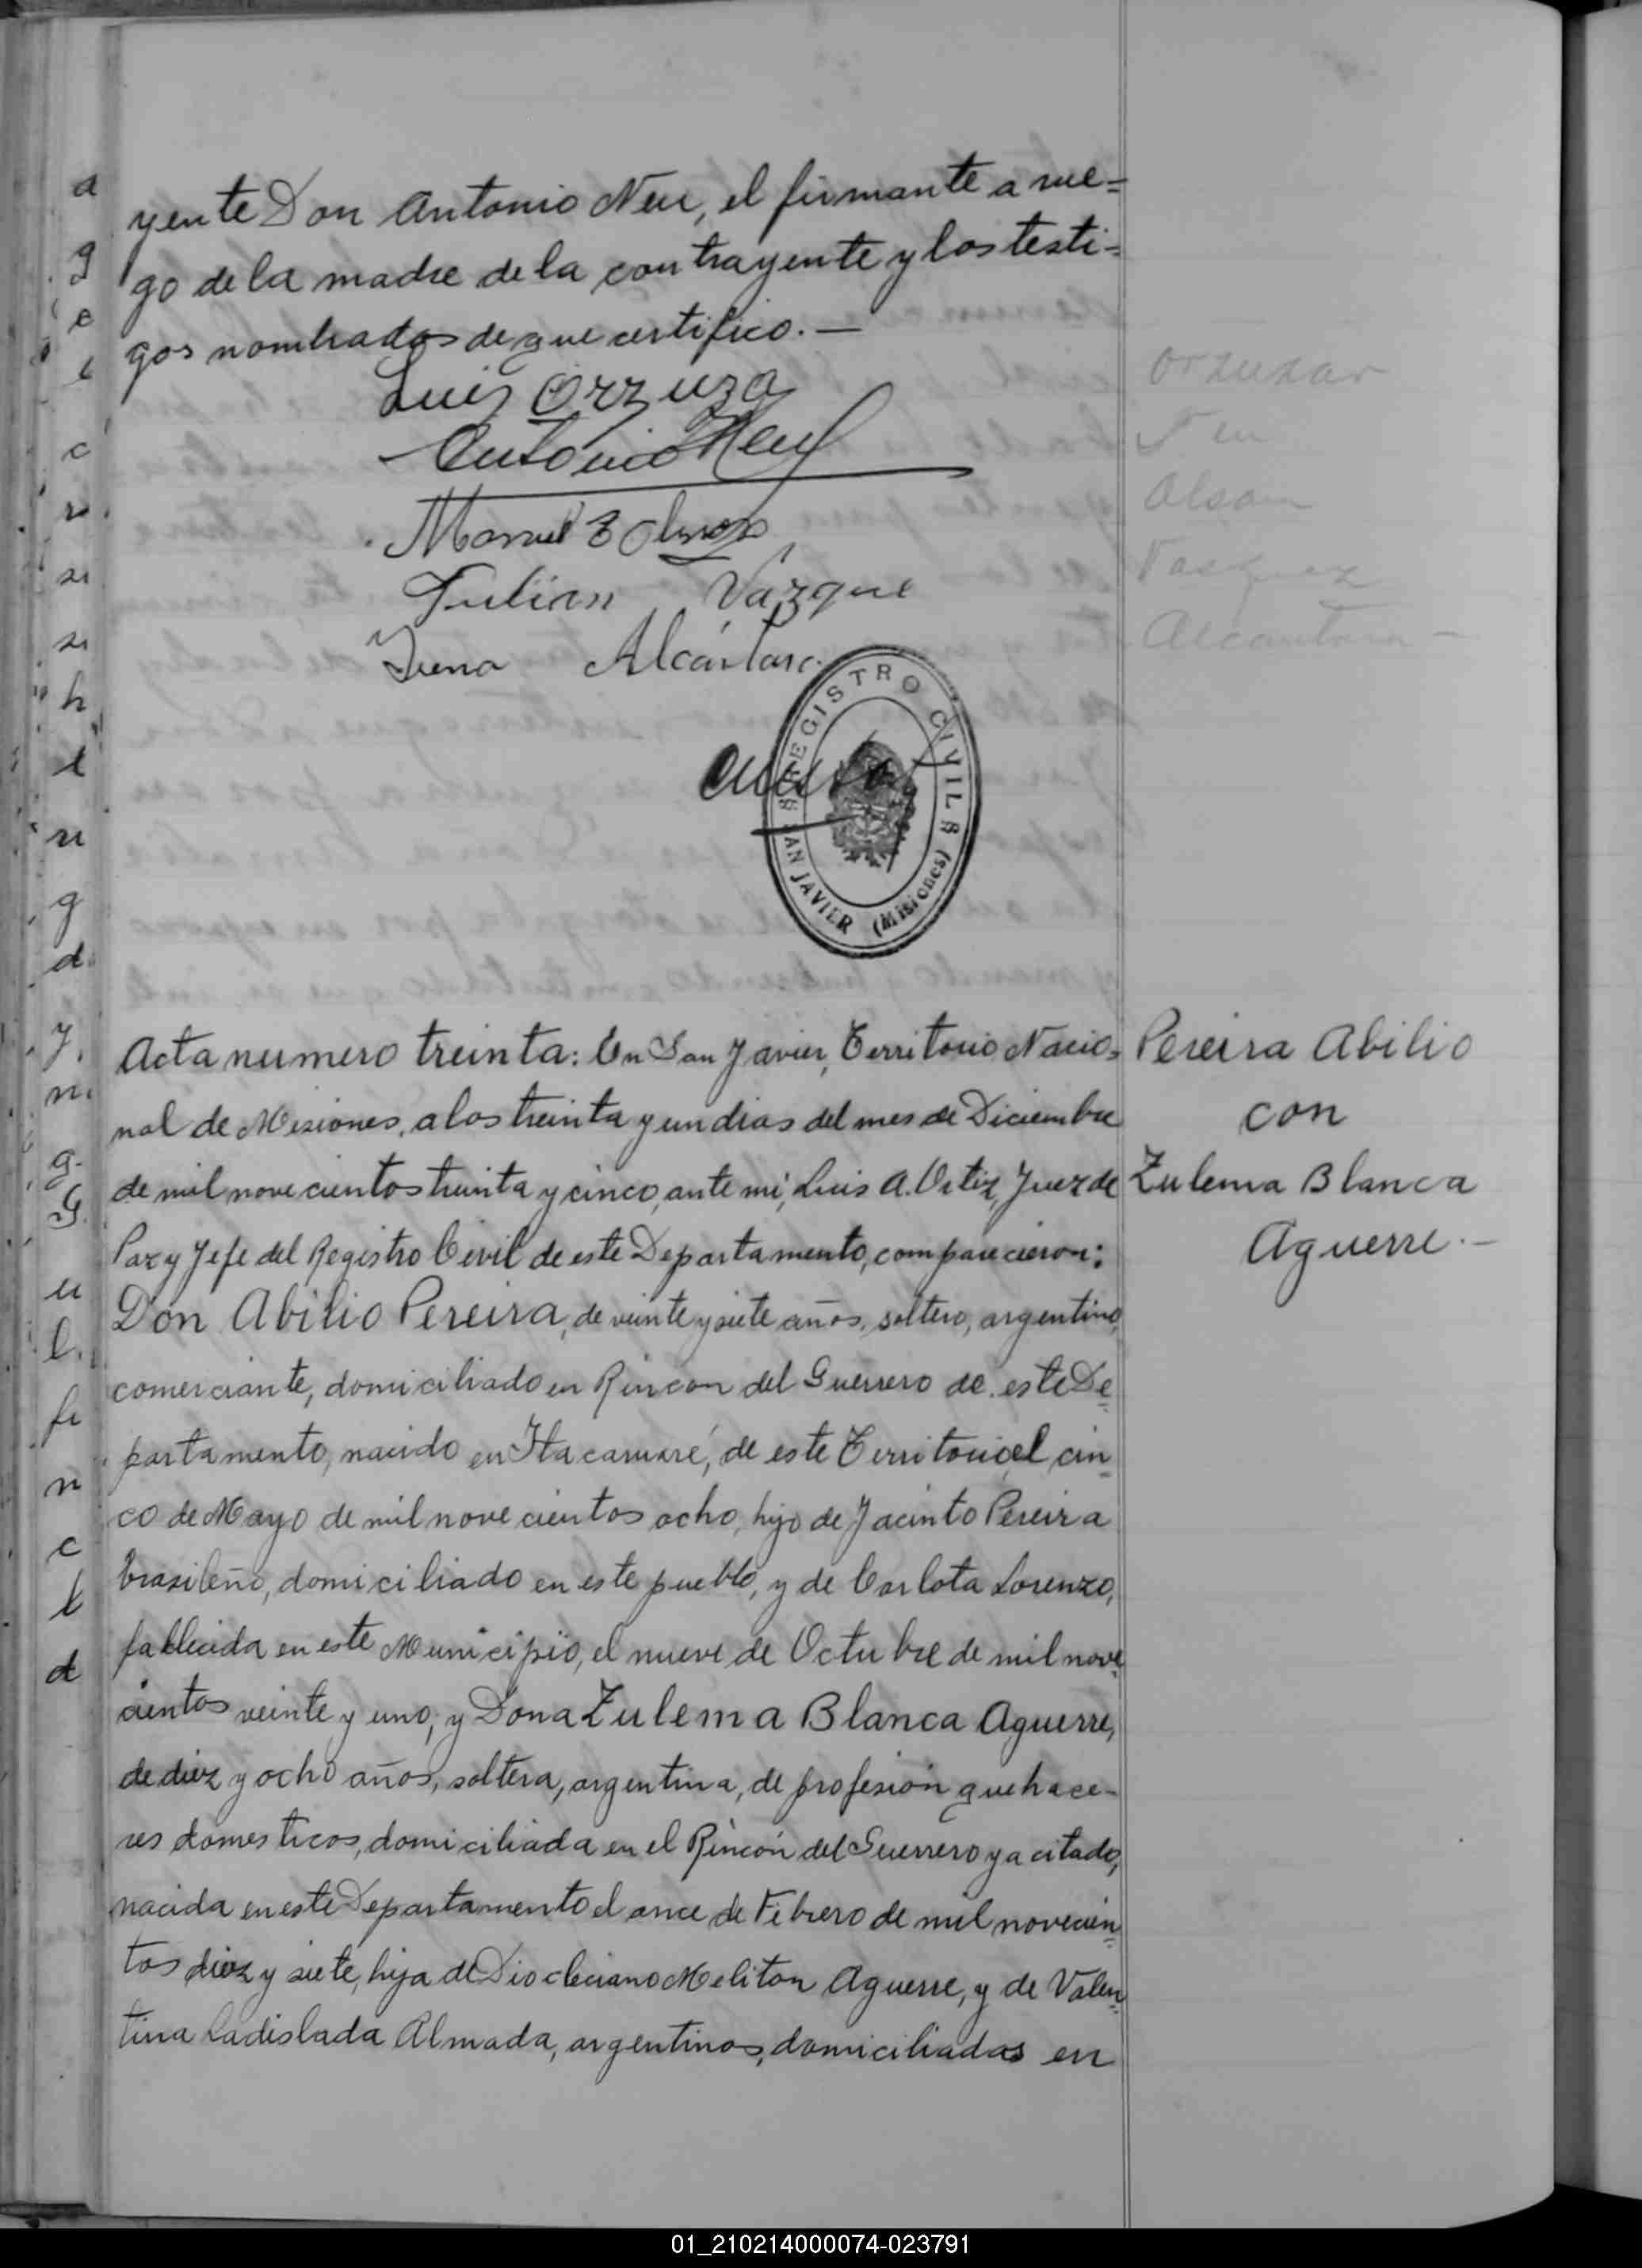 yente Don Antonio Neu, el firmante a rue=
go de la madre de la contrayente y los testi=
gos nombrados de que certifico.—
Luis Orzuza
Antonio Neu
Manuel
Julian Vazque
Alcántara
REGISTRO CIVIL
SAN JAVIER (Misiones)
Orzuzar
Neu
Vasquez
Alcantara —
Acta numero treinta: En San Javier, Territorio Nacio=
nal de Misiones, a los treinta y un dias del mes de Diciembre
de mil novecientos treinta y cinco, ante mi, Luis A. Ortiz, Juez de
Paz y Jefe del Registro Civil de este Departamento, comparecieron:
Don Abilio Pereira, de veinte y siete años, soltero, argentino,
comerciante, domiciliado en Rincon del Guerrero de este De
partamento, nacido en Itacaruaré, de este Territorio, el cin
co de Mayo de mil novecientos ocho, hijo de Jacinto Pereira
brasileño, domiciliado en este pueblo, y de Carlota Lorenzo,
fallecida en este Municipio, el nueve de Octubre de mil nove
cientos veinte y uno, y Dona Zulema Blanca Aguerre,
de diez y ocho años, soltera, argentina, de profesión quehace-
res domesticos, domiciliada en el Rincón del Guerrero ya citado,
nacida en este Departamento el once de Febrero de mil novecien
tos diez y siete, hija de Diocleciano Meliton Aguerre, y de Valen
tina Ladislada Almada, argentinos, domiciliados en
Pereira Abilio
con
Zulema Blanca
Aguerre.—
01_210214000074-023791